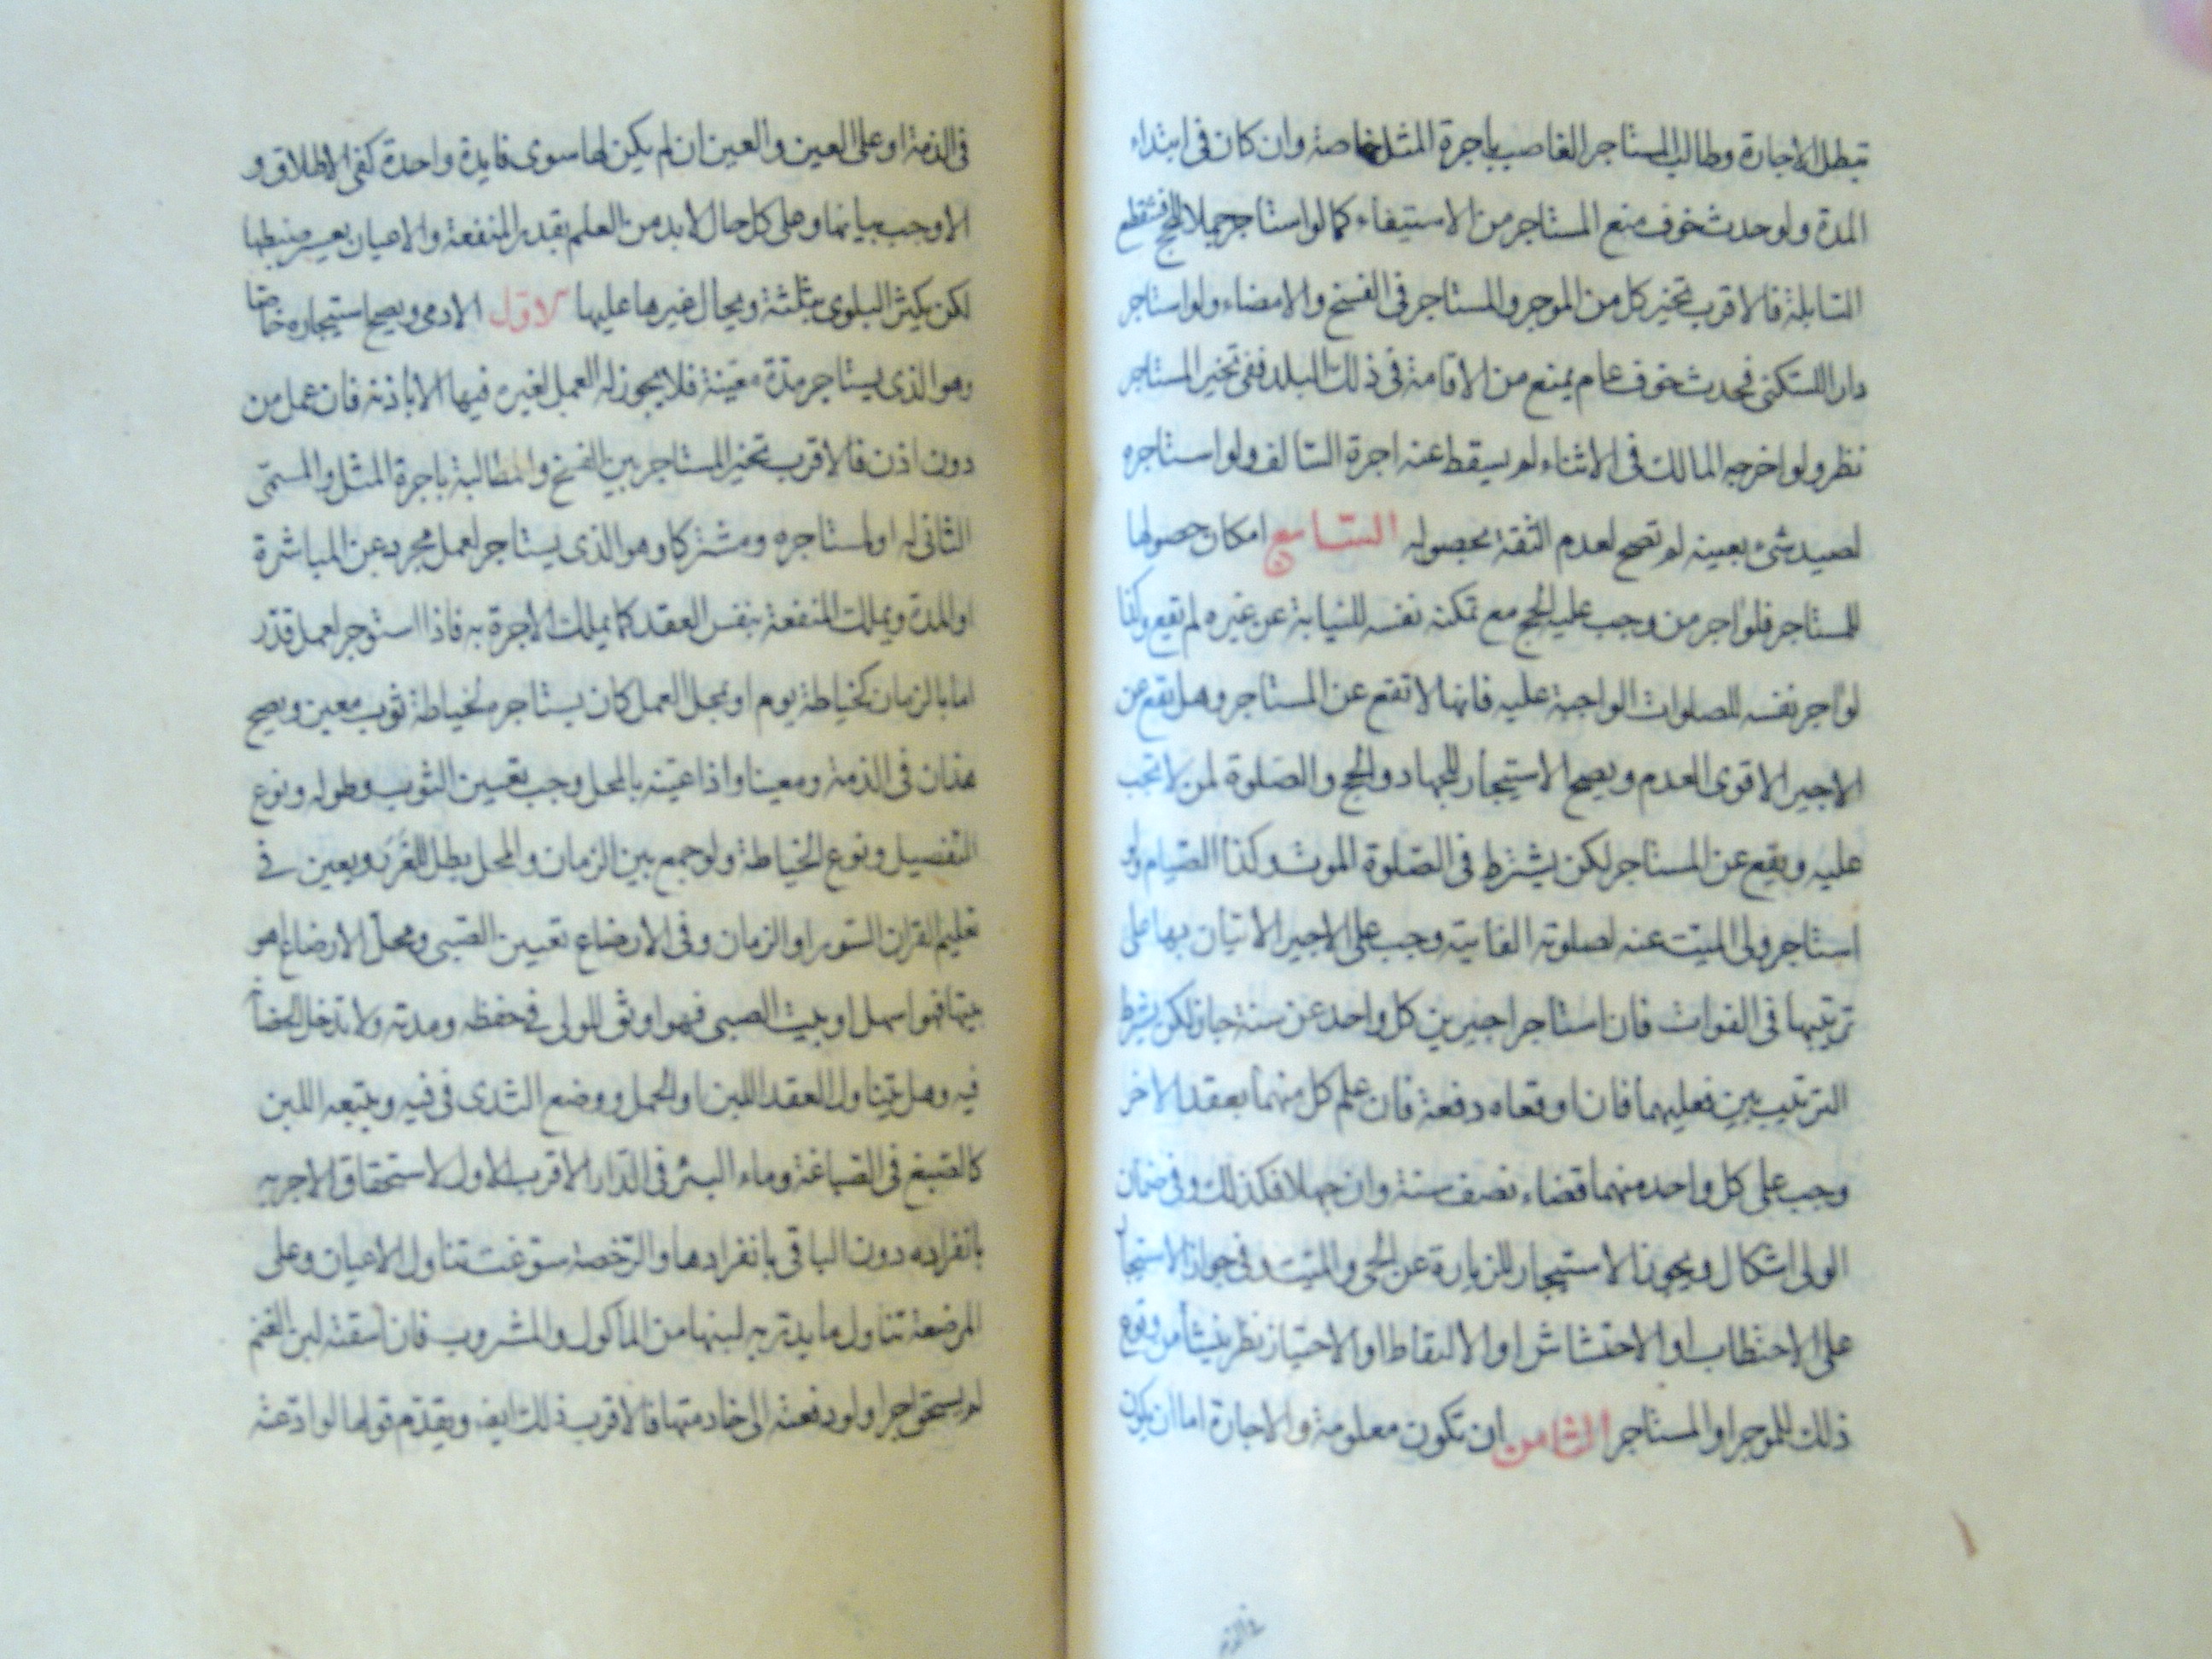 تبطل الاجارة وطالب المستاجر الغاصب باجرة المثل خاصة وان كان فى ابتداء
المدة ولو حدث خوف منع المستاجر من الاستيفاء كما لو استاجر جملا للحج فتنقطع
السابلة فالاقرب تخير كل من الموجر والمستاجر فى الفسخ والامضاء ولو استاجر
دارا للسكنى فحدث خوف عام يمنع من الاقامة فى ذلك البلد ففى تخير المستاجر
نظر ولو اخرجه المالك فى الاثناء لم يسقط عنه اجرة السالف ولو استاجره
لصيد شىء بعينه لم تصح لعدم الثقة بحصوله التاسع امكان حصولها
للمستاجر فلو اجر من وجب عليه الحج مع تمكنه نفسه للنيابة عن غيره لم تقع وكذا
لو اجر نفسه للصلوات الواجبة عليه فانها لا تقع عن المستاجر وهل يقع عن
الاجير الاقوى العدم ويصح الاستيجار للجهاد والحج والصلوة لمن لا تجب
عليه ويقع عن المستاجر لكن يشترط فى الصلوة الموت وكذا الصيام ولو
استاجر ولى الميت عنه لصلوته الفايتة وجب على الاجير الاتيان بها على
ترتيبها فى الفوات فان استاجر اجيرين كل واحد عن سنة جاز لكن يشترط
الترتيب بين فعليهما فان اوقعاه دفعة فان علم كل منهما بعقد الاخر
وجب على كل واحد منهما قضاء نصف سنة وان جهلا فكذلك وفى ضمان
الولى اشكال ويجوز الاستيجار للزيارة عن الحى والميت وفى جواز الاستيجا
على الاحتطاب او الاحتشاش او الالتقاط او الاحتياز نظر ينشأ من وقوع
ذلك للموجر او المستاجر الثامن ان تكون معلومة والاجارة اما ان يكون
فى الذمة
فى الذمة او على العين والعين ان لم يكن لها سوى فايدة واحدة كفى الاطلاق و
الا وجب بيانها وعلى كل حال لابد من العلم بقدر المنفعة والاعيان يعسر ضبطها
لكن يكثر البلوى بثلثة ويحال غيرها عليها الاول الادمى ويصح استيجاره خاصا
وهو الذى يستاجر مدة معينة فلا يجوز له العمل لغيره فيها الا باذنه فان عمل من
دون اذن فالاقرب تخير المستاجر بين الفسخ والمطالبة باجرة المثل والمسمى
الثانى له او لمستاجره ومشتركا وهو الذى يستاجر لعمل مجرد عن المباشرة
او المدة ويملك المنفعة بنفس العقد كما يملك الاجرة به فاذا استوجر لعمل قدر
اما بالزمان كخياطة يوم او بمحل العمل كان يستاجره لخياطة ثوب معين ويصح
هذان فى الذمة ومعينا واذا عينه بالمحل وجب تعيين الثوب وطوله ونوع
التفصيل ونوع الخياطة ولو جمع بين الزمان والمحل بطل للغرر ويعين فى
تعليم القران السور او الزمان وفى الارضاع تعيين الصبى ومحل الارضاع اهو
بيتها فهو اسهل او بيت الصبى فهو اوثق للولى فى حفظه ومدته ولا تدخل الحضا
فيه وهل يتناول العقد اللبن او الحمل ووضع الثدى فى فيه ويتبعه اللبن
كالصبغ فى الصباغة وماء البئر فى الدار الاقرب الاول لاستحقاق الاجر به
بانفراده دون الباقى بانفرادها والرخصة سوغت تناول الاعيان وعلى
المرضعة تناول ما يدر به لبنها من الماكول والمشروب فان اسقته لبن الغنم
لم يستحق اجرا ولو دفعته الى خادمتها فالاقرب ذلك ايض ويقدم قولها لو ادعته